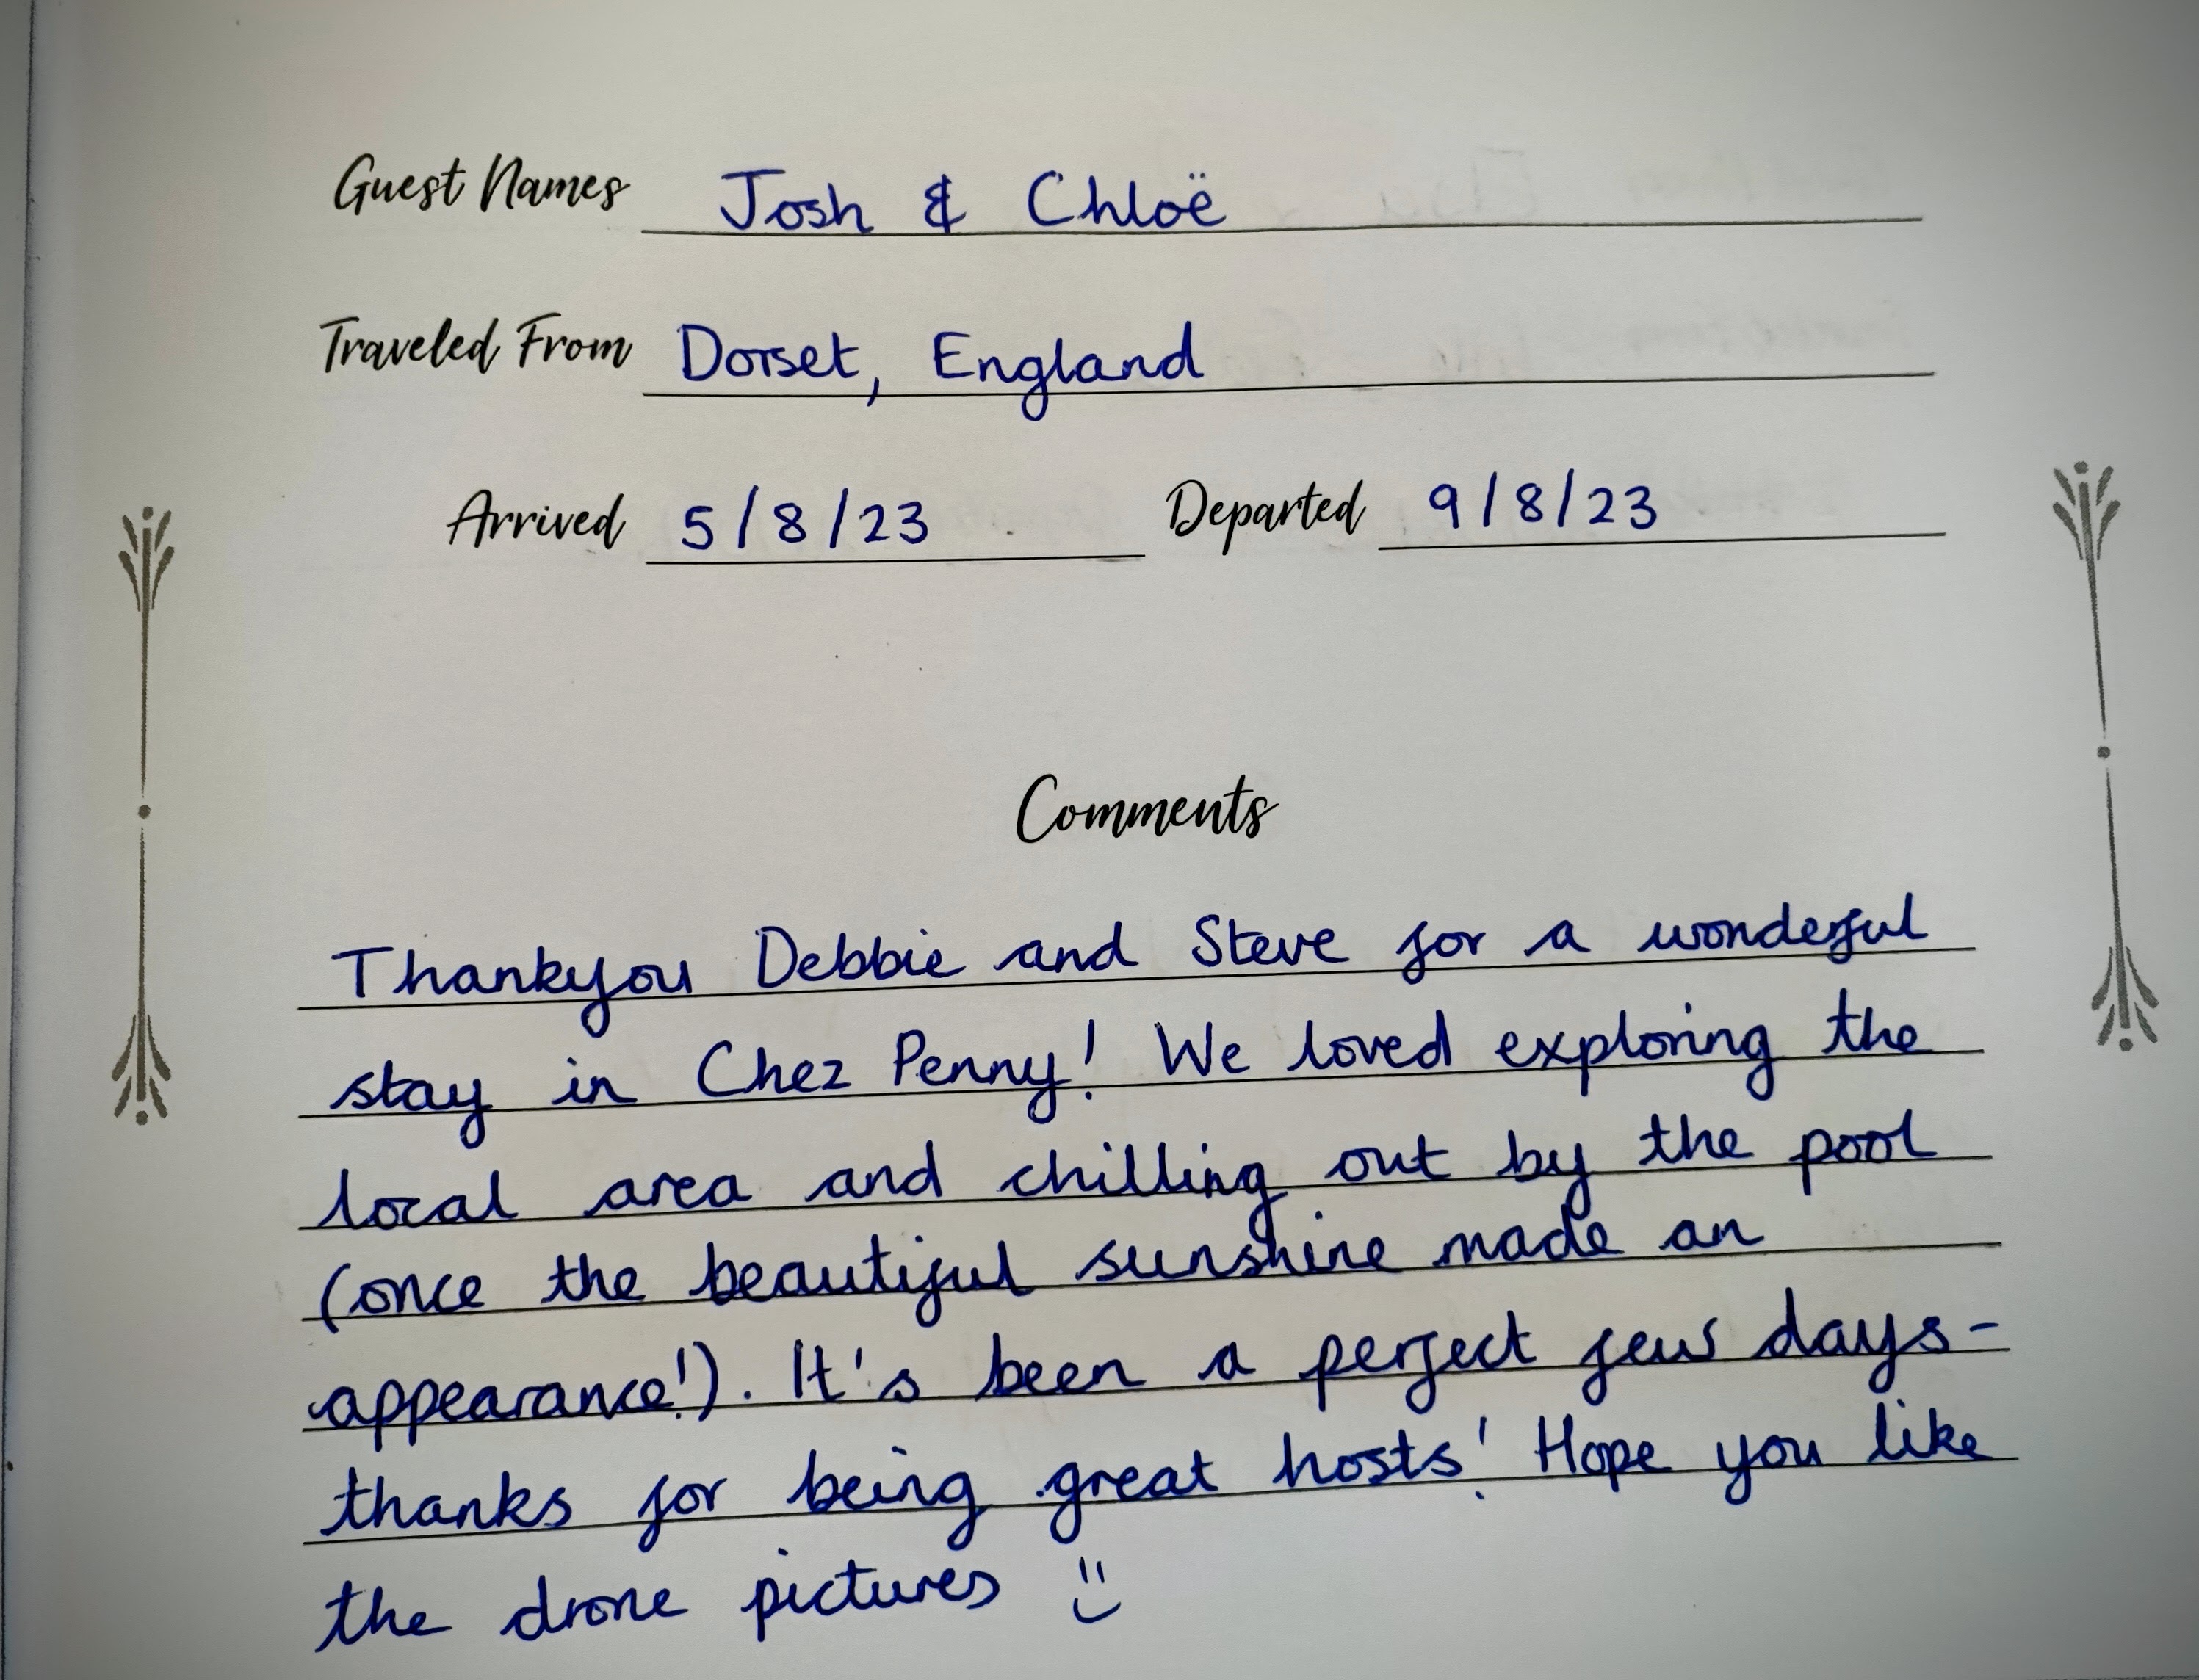 Guest Names Josh & Chloë
Traveled From Dorset, England
Arrived 5/8/23 Departed 9/8/23
Comments
Thankyou Debbie and Steve for a wonderful
stay in Chez Penny! We loved exploring the
local area and chilling out by the pool
(once the beautiful sunshine made an
appearance!). It's been a perfect few days -
thanks for being great hosts! Hope you like
the drone pictures :)